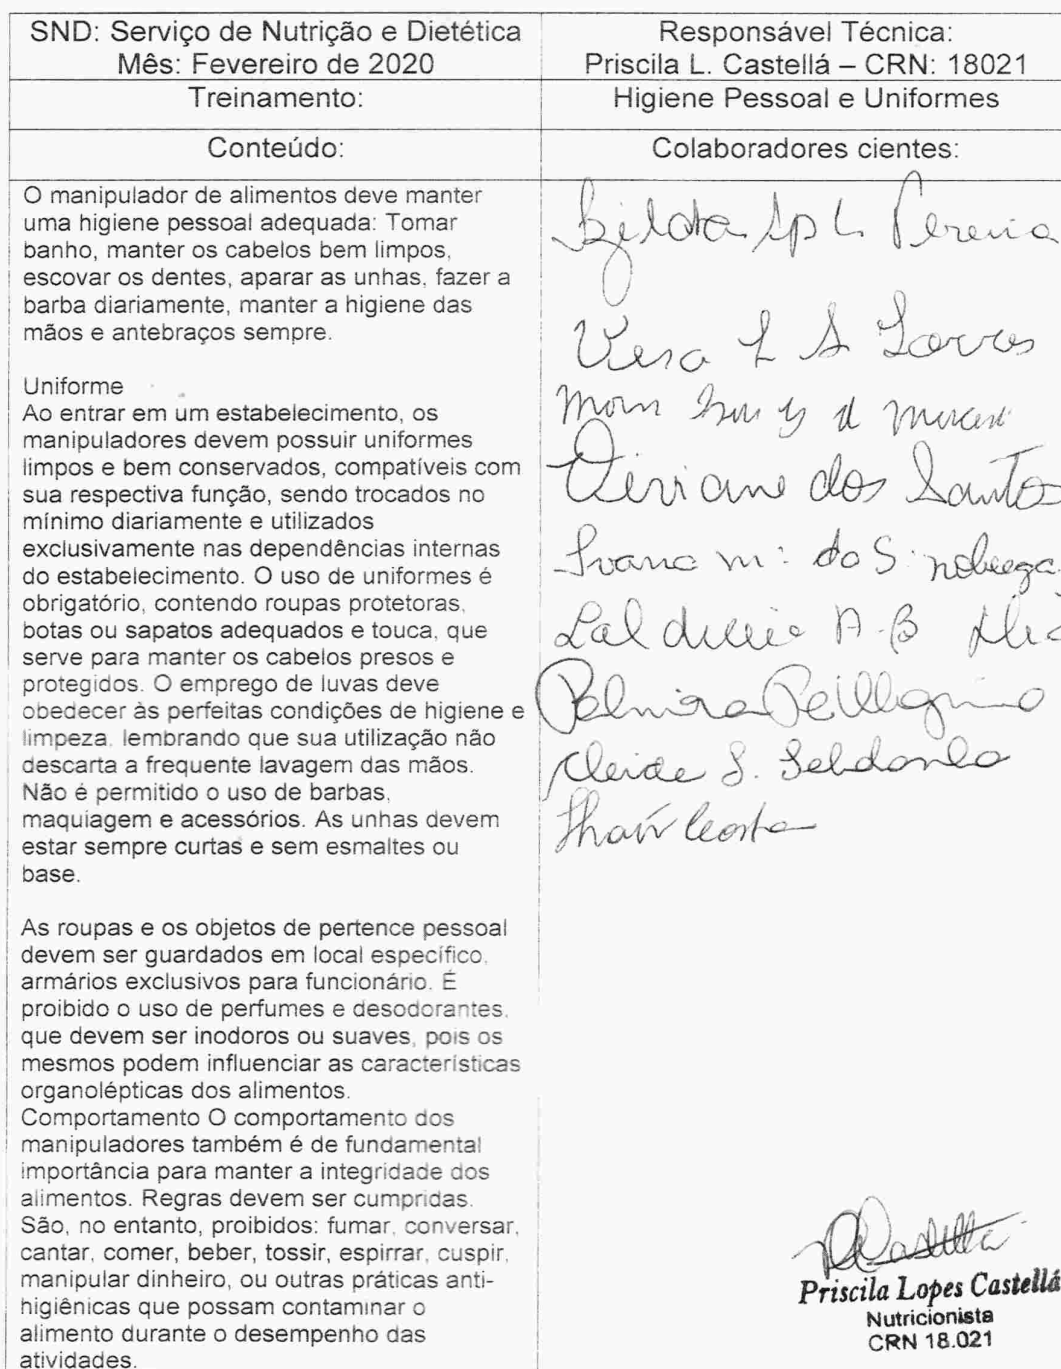 SND: Serviço de Nutrição e Dietética
Mês: Fevereiro de 2020
Responsável Técnica:
Priscila L. Castellá – CRN: 18021
Treinamento:
Higiene Pessoal e Uniformes
Conteúdo:
Colaboradores cientes:
O manipulador de alimentos deve manter
uma higiene pessoal adequada: Tomar
banho, manter os cabelos bem limpos,
escovar os dentes, aparar as unhas, fazer a
barba diariamente, manter a higiene das
mãos e antebraços sempre.
Uniforme
Ao entrar em um estabelecimento, os
manipuladores devem possuir uniformes
limpos e bem conservados, compatíveis com
sua respectiva função, sendo trocados no
mínimo diariamente e utilizados
exclusivamente nas dependências internas
do estabelecimento. O uso de uniformes é
obrigatório, contendo roupas protetoras,
botas ou sapatos adequados e touca, que
serve para manter os cabelos presos e
protegidos. O emprego de luvas deve
obedecer às perfeitas condições de higiene e
limpeza, lembrando que sua utilização não
descarta a frequente lavagem das mãos.
Não é permitido o uso de barbas,
maquiagem e acessórios. As unhas devem
estar sempre curtas e sem esmaltes ou
base.
As roupas e os objetos de pertence pessoal
devem ser guardados em local específico,
armários exclusivos para funcionário. É
proibido o uso de perfumes e desodorantes,
que devem ser inodoros ou suaves, pois os
mesmos podem influenciar as características
organolépticas dos alimentos.
Comportamento O comportamento dos
manipuladores também é de fundamental
importância para manter a integridade dos
alimentos. Regras devem ser cumpridas.
São, no entanto, proibidos: fumar, conversar,
cantar, comer, beber, tossir, espirrar, cuspir,
manipular dinheiro, ou outras práticas anti-
higiênicas que possam contaminar o
alimento durante o desempenho das
atividades.
Ap L. Pereira
Vera L S
Viviane dos Santos
Ivana Mª da S. Nobrega
A. B
Palmira Pellegrino
Cleide S.
Costa
Priscila Lopes Castellá
Nutricionista
CRN 18.021